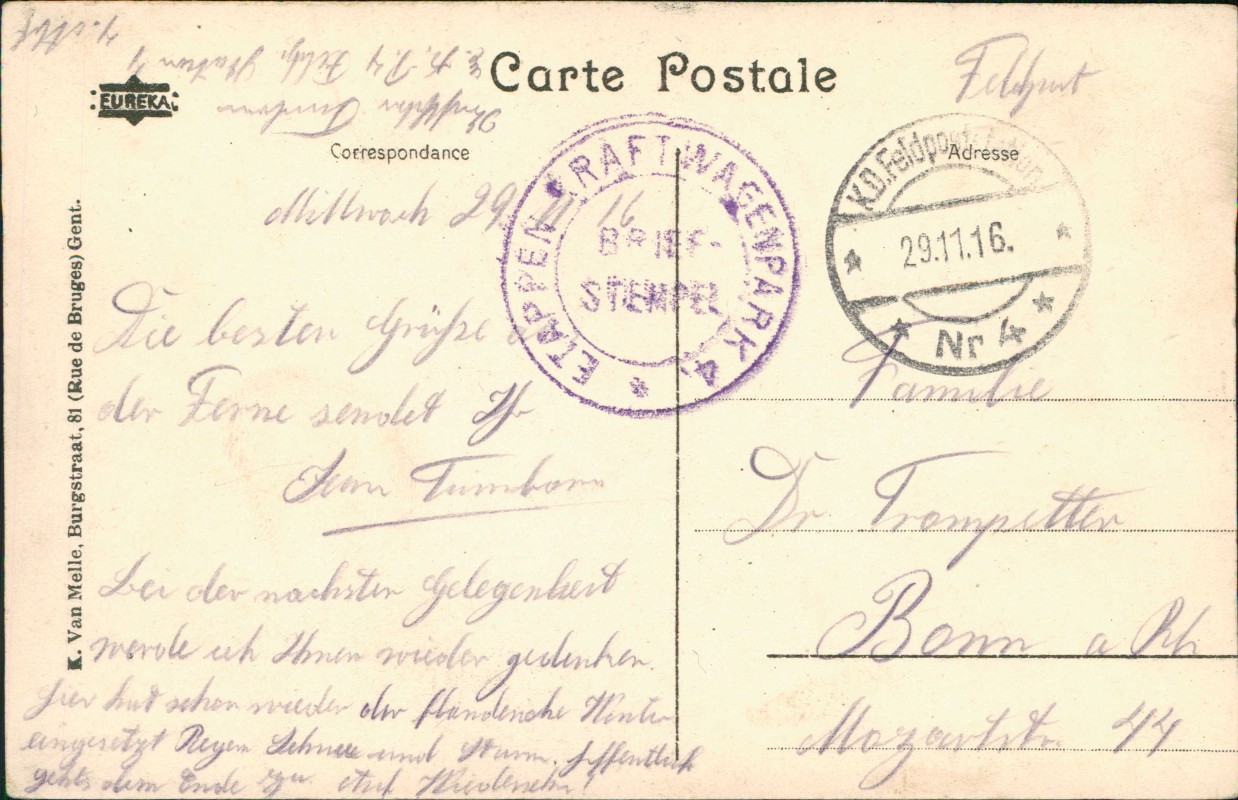 Carte Postale
EUREKA
Feldpost
Correspondance
Adresse
ETAPPEN KRAFTWAGENPARK 4.
BRIEF-
STEMPEL
K.D. Feldpoststation
29.11.16.
Nr 4
K. Van Melle, Burgstraat, 81 (Rue de Bruges) Gent.
Mittwoch 29. 11 16
Die besten Grüße
der Ferne sendet Ihr
Jean
Bei der nächsten Gelegenheit
werde ich Ihnen wieder gedenken.
Hier hat schon wieder der flandersche Winter
eingesetzt Regen Schnee und Sturm. Hoffentlich
gehts dem Ende zu. Auf Wiedersehn!
Familie
Dr. Trompetter
Bonn a Rh
Mozartstr. 44